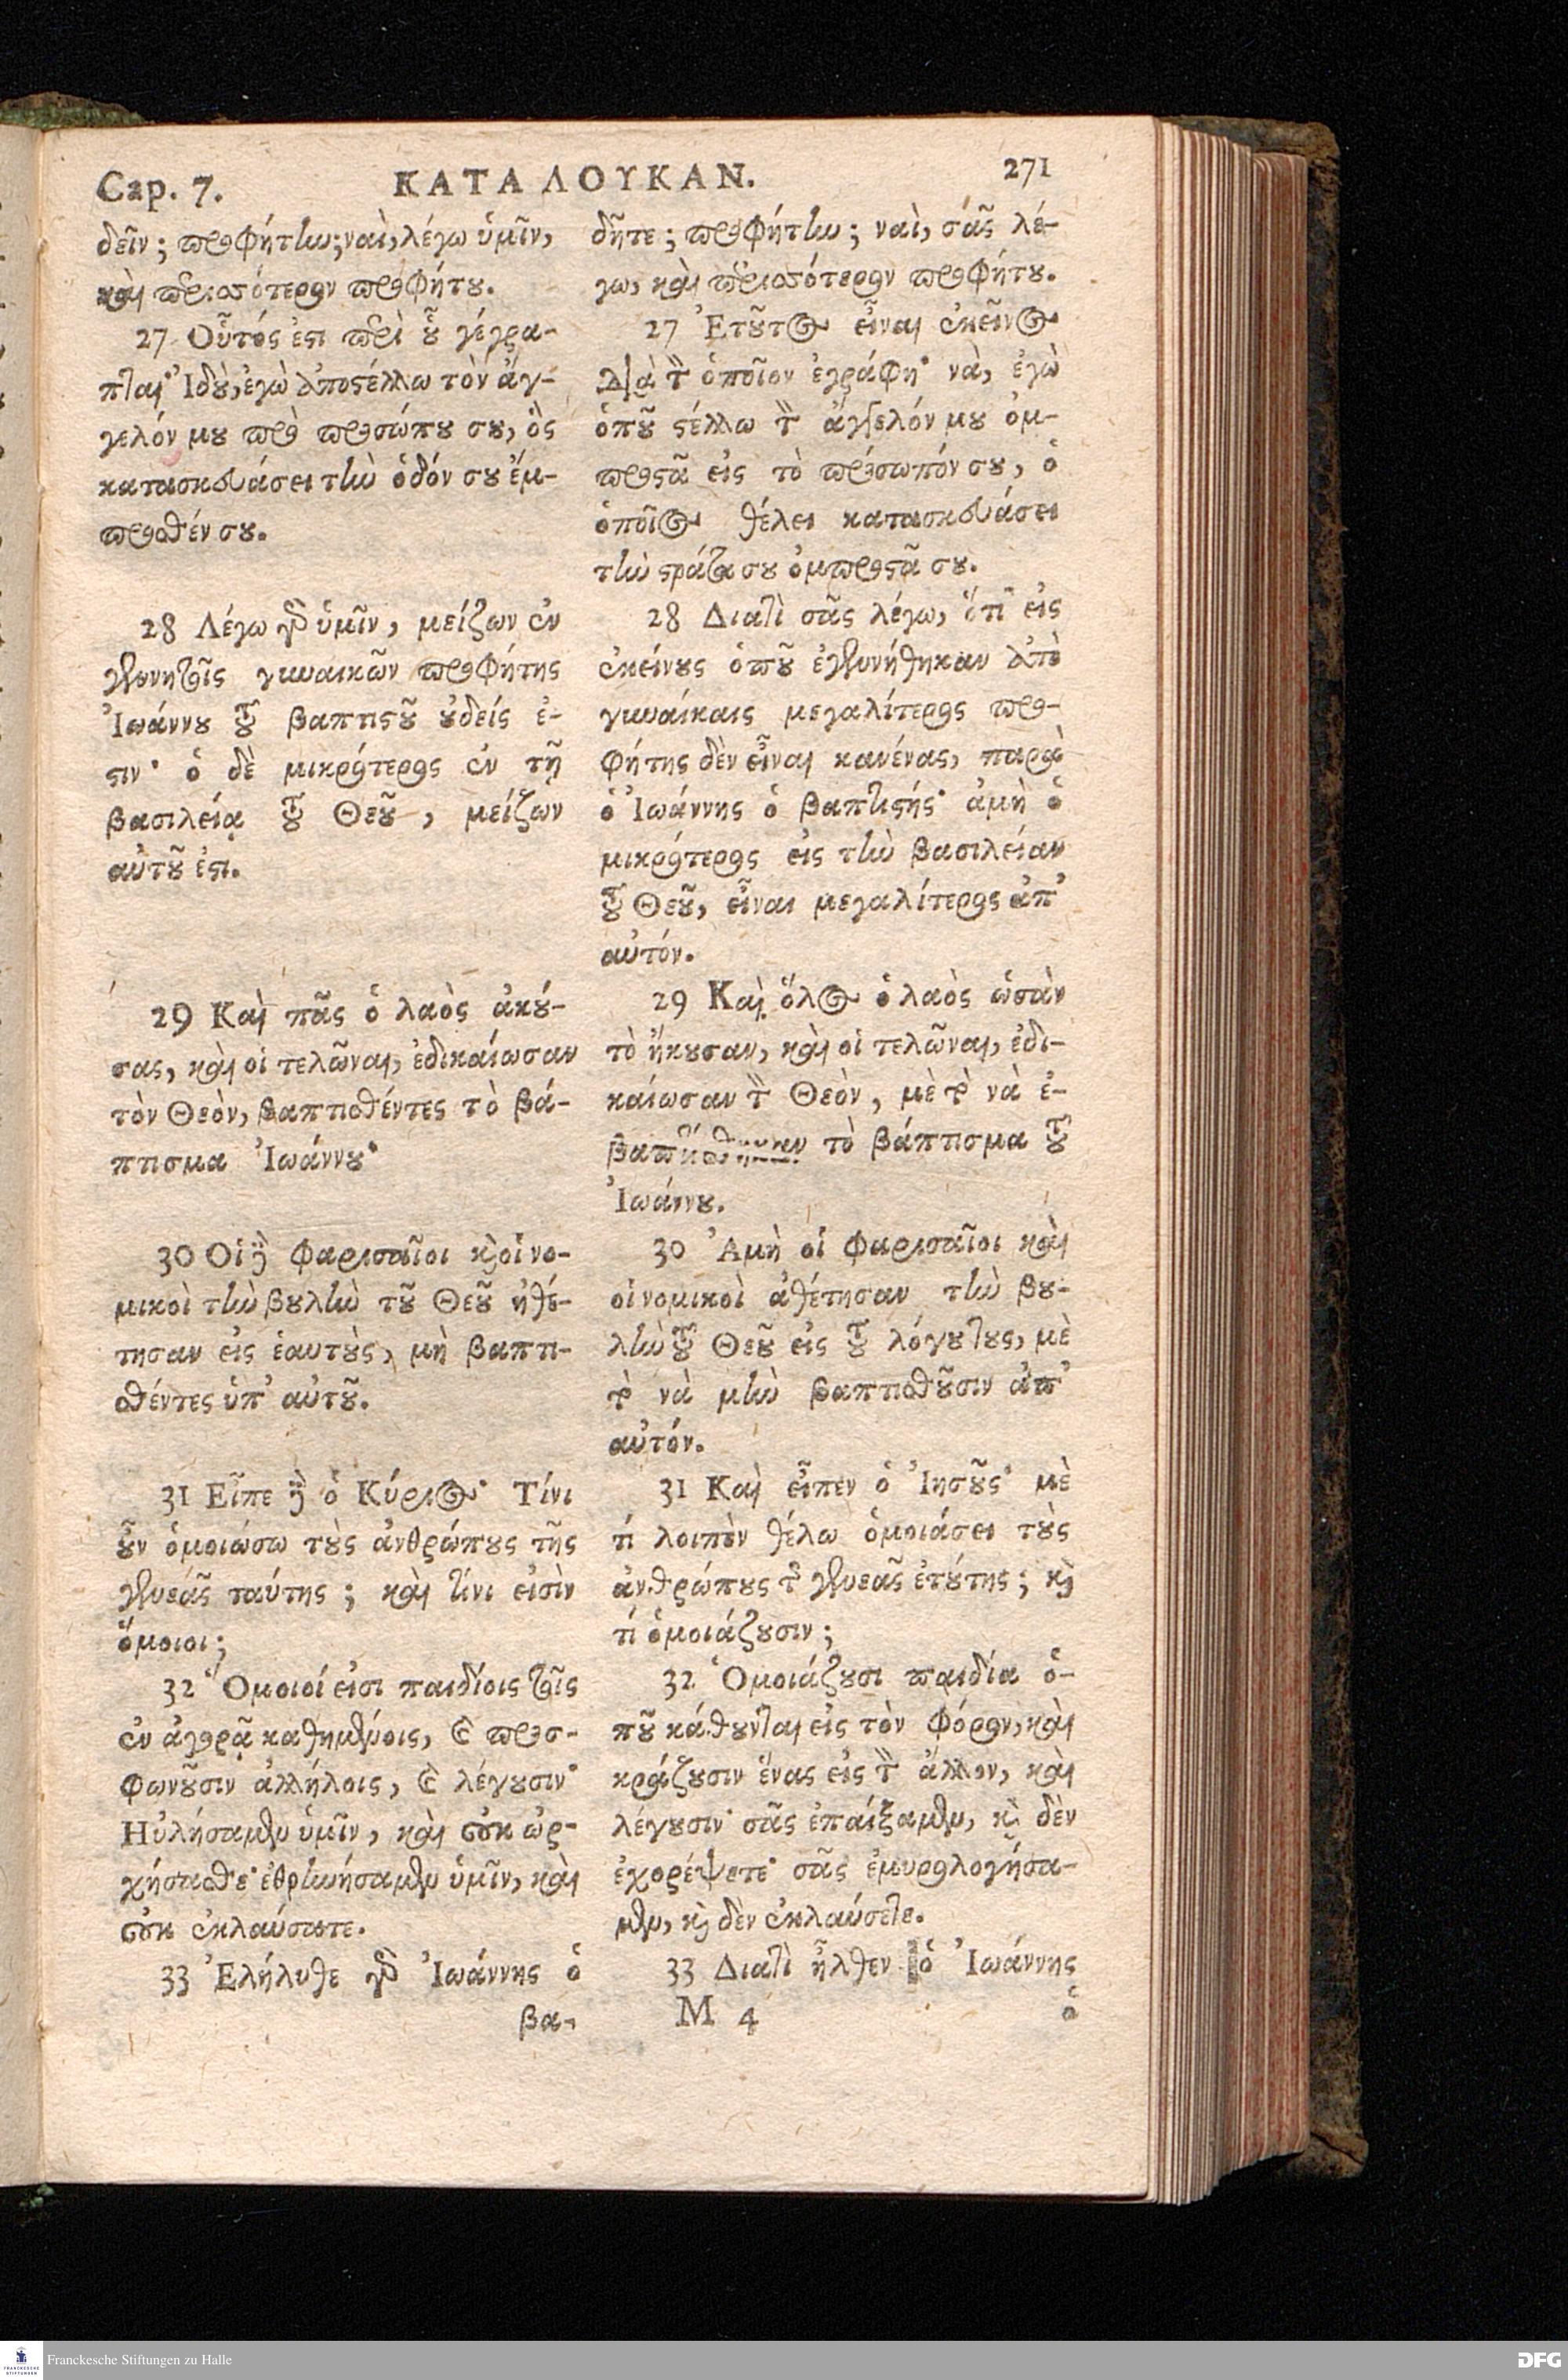 Cap. 7.
ΚΑΤΑ ΛΟΥΚΑΝ.
271
δεῖν; προφήτην; ναὶ, λέγω ὑμῖν,
καὶ περισσότερον προφήτου.
27 Οὗτός ἐστι περὶ οὗ γέγρα-
πται· Ἰδοὺ, ἐγὼ ἀποστέλλω τὸν ἄγ-
γελόν μου πρὸ προσώπου σου, ὃς
κατασκευάσει τὴν ὁδόν σου ἔμ-
προσθέν σου.
28 Λέγω γὰρ ὑμῖν, μείζων ἐν
γεννητοῖς γυναικῶν προφήτης
Ἰωάννου τοῦ βαπτιστοῦ οὐδείς ἐ-
στιν· ὁ δὲ μικρότερος ἐν τῇ
βασιλείᾳ τοῦ Θεοῦ, μείζων
αὐτοῦ ἐστι.
29 Καὶ πᾶς ὁ λαὸς ἀκού-
σας, καὶ οἱ τελῶναι, ἐδικαίωσαν
τὸν Θεὸν, βαπτισθέντες τὸ βά-
πτισμα Ἰωάννου·
30 Οἱ δὲ Φαρισαῖοι καὶ οἱ νο-
μικοὶ τὴν βουλὴν τοῦ Θεοῦ ἠθέ-
τησαν εἰς ἑαυτοὺς, μὴ βαπτι-
σθέντες ὑπ' αὐτοῦ.
31 Εἶπε δὲ ὁ Κύριος· Τίνι
οὖν ὁμοιώσω τοὺς ἀνθρώπους τῆς
γενεᾶς ταύτης; καὶ τίνι εἰσὶν
ὅμοιοι;
32 Ὅμοιοί εἰσι παιδίοις τοῖς
ἐν ἀγορᾷ καθημένοις, καὶ προσ-
φωνοῦσιν ἀλλήλοις, καὶ λέγουσιν·
Ηὐλήσαμεν ὑμῖν, καὶ οὐκ ὠρ-
χήσασθε· ἐθρηνήσαμεν ὑμῖν, καὶ
οὐκ ἐκλαύσατε.
33 Ἐλήλυθε γὰρ Ἰωάννης ὁ
βα-
δῆτε; προφήτην; ναὶ, σᾶς λέ-
γω, καὶ περισσότερον προφήτου.
27 Ἐτοῦτος εἶναι ἐκεῖνος
διὰ τὸν ὁποῖον ἐγράφη· νὰ, ἐγὼ
ὁποῦ στέλλω τὸν ἄγγελόν μου ὀμ-
προστᾶ εἰς τὸ πρόσωπόν σου, ὁ
ὁποῖος θέλει κατασκευάσει
τὴν στράταν σου ὀμπροστᾶ σου.
28 Διατὶ σᾶς λέγω, ὅτι εἰς
ἐκείνους ὁποῦ ἐγεννήθηκαν ἀπὸ
γυναίκαις μεγαλίτερος προ-
φήτης δὲν εἶναι κανένας, παρὰ
ὁ Ἰωάννης ὁ βαπτιστής· ἀμὴ ὁ
μικρότερος εἰς τὴν βασιλείαν
τοῦ Θεοῦ, εἶναι μεγαλίτερος ἀπ'
αὐτόν.
29 Καὶ ὅλος ὁ λαὸς ὡσὰν
τὸ ἤκουσαν, καὶ οἱ τελῶναι, ἐδι-
καίωσαν τὸν Θεὸν, μὲ τὸ νὰ ἐ-
βαπτίσθηκαν τὸ βάπτισμα τοῦ
Ἰωάννου.
30 Ἀμὴ οἱ Φαρισαῖοι καὶ
οἱ νομικοὶ ἀθέτησαν τὴν βου-
λὴν τοῦ Θεοῦ εἰς τοῦ λόγου τους, μὲ
τὸ νὰ μὴν βαπτισθοῦσιν ἀπ'
αὐτόν.
31 Καὶ εἶπεν ὁ Ἰησοῦς· μὲ
τί λοιπὸν θέλω ὁμοιάσει τοὺς
ἀνθρώπους τῆς γενεᾶς ἐτούτης; καὶ
τί ὁμοιάζουσιν;
32 Ὁμοιάζουσι παιδία ὁ-
ποῦ κάθουνται εἰς τὸν φόρον, καὶ
κράζουσιν ἕνας εἰς τὸν ἄλλον, καὶ
λέγουσιν· σᾶς ἐπαίξαμεν, καὶ δὲν
ἐχορέψετε· σᾶς ἐμυρολογήσα-
μεν, καὶ δὲν ἐκλαύσετε.
33 Διατὶ ἦλθεν ὁ Ἰωάννης
M 4
ὁ
FRANCKESCHE STIFTUNGEN
Franckesche Stiftungen zu Halle
DFG